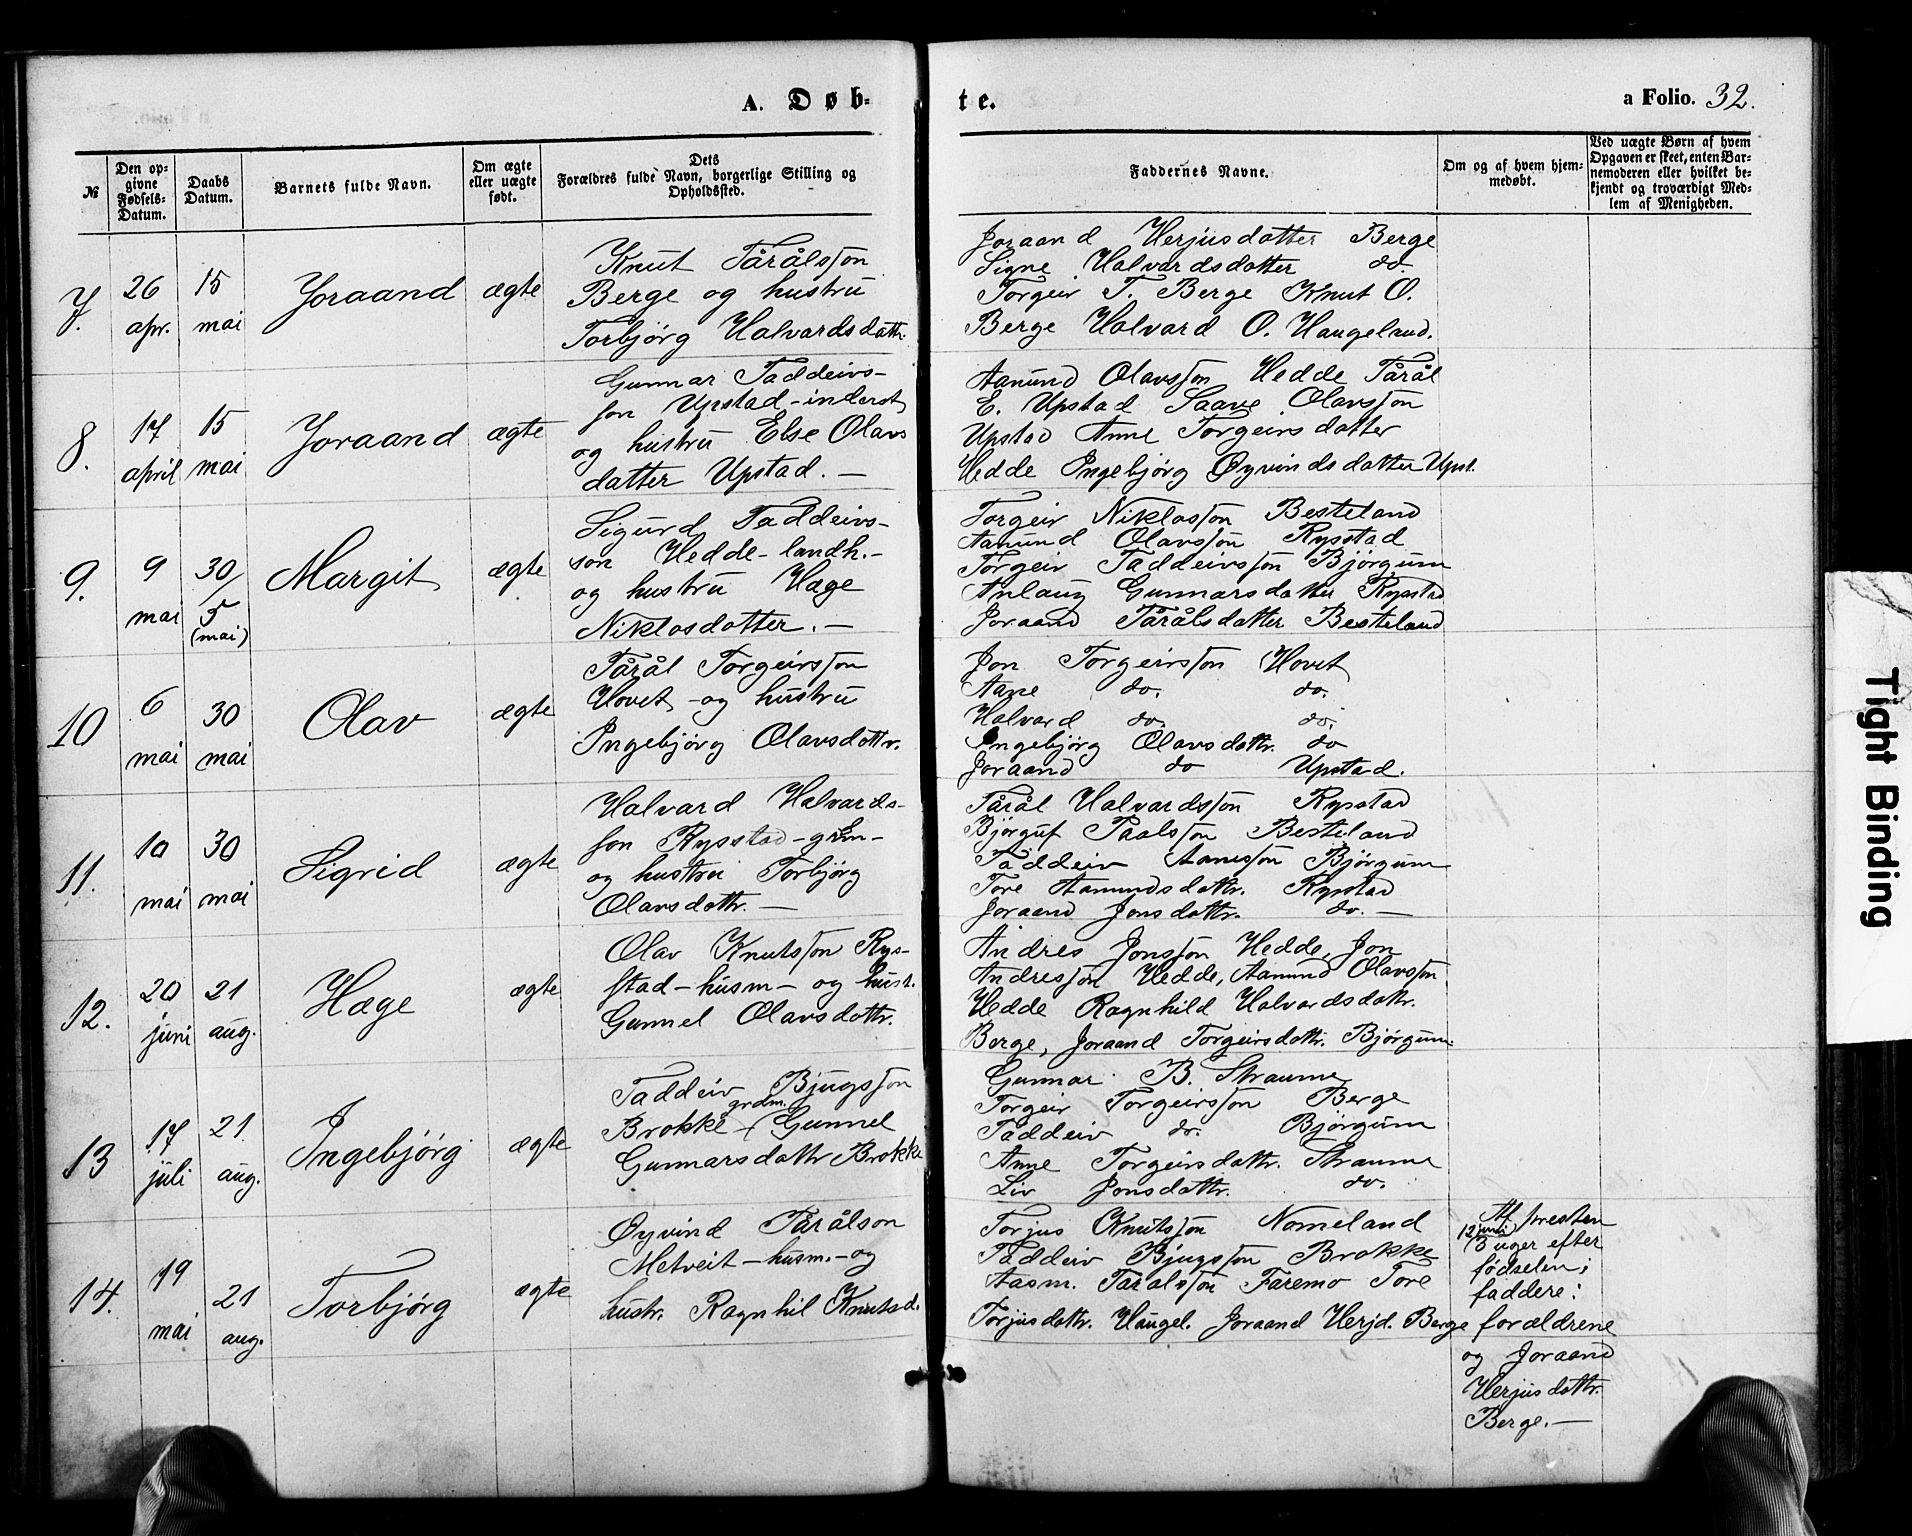 A. Døb-
te.
a Folio. 32.
№
Den op-
givne
Fødsels-
Datum.
Daabs
Datum.
Barnets fulde Navn.
Om ægte
eller uægte
født.
Dets
Forældres fulde Navn, borgerlige Stilling og
Opholdssted.
Faddernes Navne.
Om og af hvem hjem-
medøbt.
Ved uægte Børn af hvem
Opgaven er skeet, enten Bar-
nemoderen eller hvilket be-
kjendt og troværdigt Med-
lem af Menigheden.
7.
26
apr.
15
mai
Joraand
ægte
Knut Tårålsson
Berge og hustru
Torbjørg Halvardsdattr.
Joraand Herjusdatter Berge
Signe Halvardsdatter do.
Torgeir T. Berge Knut O.
Berge Halvard O. Haugeland.
8.
17
april
15
mai
Joraand
ægte
Gunnar Taddeivs-
son Upstad-inderst
og hustru Else Olavs
datter Upstad. —
Aanund Olavsson Hedde Tårål
E. Upstad Saave Olavsson
Upstad Anne Torgeirsdatter
Hedde Ingebjørg Øyvindsdatter Upst.
9.
9
mai
30/
5
(mai)
Margit
ægte
Sigurd Taddeivs-
son Hedde-landh.-
og hustru Hæge
Niklosdatter. —
Torgeir Niklosson Besteland
Aanund Olavsson Rysstad
Torgeir Taddeivsson Bjørgum
Anlaug Gunnarsdatter Rysstad
Joraand Tårålsdatter Besteland
10
6
mai
30
mai
Olav
ægte
Tårål Torgeirsson
Hovet -og hustru
Ingebjørg Olavsdottr.
Jon Torgeirsson Hovet
Aane do. do.
Halvard do. do.
Ingebjørg Olavsdattr. do
Joraand do Upstad.
11.
10
mai
30
mai
Sigrid
ægte
Halvard Halvards-
son Rysstad-grdm-
og hustru Torbjørg
Olavsdattr. —
Tårål Halvardsson Rysstad
Bjørguf Paalsson Besteland
Taddeiv Aanesson Bjørgum
Tore Aamundsdattr. Rysstad
Joraand Jonsdattr. do. —
12.
20
juni
21
aug.
Hæge
ægte
Olav Knutsson Rys-
stad-husm- og hust.
Gunnel Olavsdottr.
Andres Jonsson Hedde, Jon
Andresson Hedde, Aamund Olavsson
Hedde Ragnhild Halvardsdattr.
Berge, Joraand Torgeirsdattr. Bjørgum.
13
17
juli
21
aug.
Ingebjørg
ægte
Taddeiv Bjugsson
grdm.
Brokke / Gunnel
Gunnarsdattr Brokke
Gunnar B. Straume
Torgeir Torgeirsson Berge
Taddeiv do. Bjørgum
Anne Torgeirsdattr. Straume
Liv Jonsdattr. do.
14.
19
mai
21
aug.
Torbjørg
ægte
Øyvind Tårålson
Metveit-husm.-og
hustr. Ragnhil Knutsd.
Torjus Knutsson Nomeland
Taddeiv Bjugsson Brokke
Aasm. Tarålsson Faremo Tore
Torjusdattr. Haugel. Joraand Herjd. Berge
Af presten
12 juni
(3 uger efter
fødselen;
faddere:
forældrene
og Joraand
Herjusdattr.
Berge. —
Tight Binding